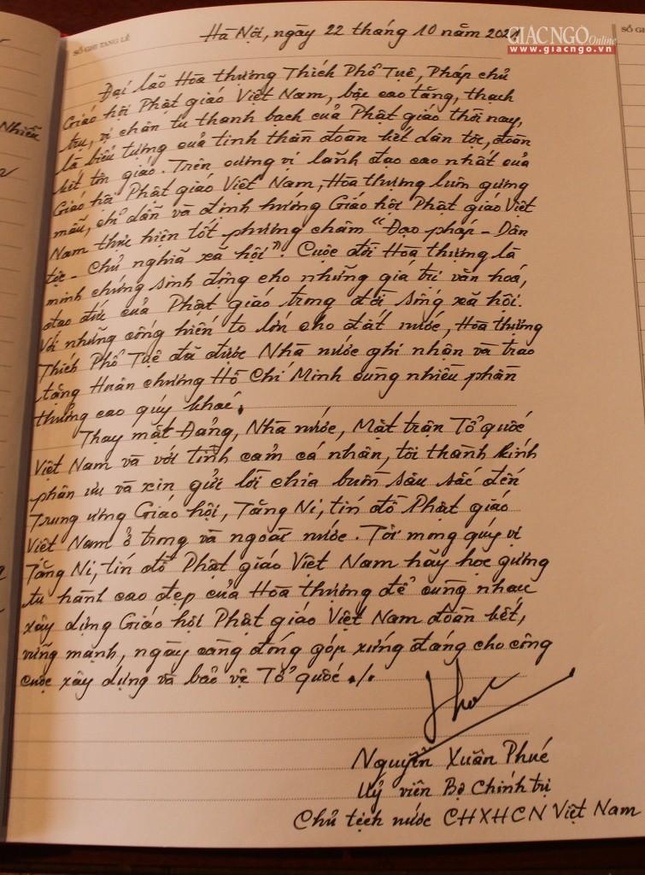 GIACNGO Online
www.giacngo.vn
SỔ GHI TANG LỄ
SỔ GHI
Nhiễu
Hà Nội, ngày 22 tháng 10 năm 2021
Đại lão Hòa thượng Thích Phổ Tuệ, Pháp chủ
Giáo hội Phật giáo Việt Nam, bậc cao tăng, thạch
trụ, vị chân tu thanh bạch của Phật giáo thời nay,
là biểu tượng của tinh thần đoàn kết dân tộc, đoàn
kết tôn giáo. Trên cương vị lãnh đạo cao nhất của
Giáo hội Phật giáo Việt Nam, Hòa thượng luôn gương
mẫu, chỉ dẫn và định hướng Giáo hội Phật giáo Việt
Nam thực hiện tốt phương châm "Đạo pháp - Dân
tộc - Chủ nghĩa xã hội". Cuộc đời Hòa thượng là
minh chứng sinh động cho những giá trị văn hoá,
đạo đức của Phật giáo trong đời sống xã hội.
Với những cống hiến to lớn cho đất nước, Hòa thượng
Thích Phổ Tuệ đã được Nhà nước ghi nhận và trao
tặng Huân chương Hồ Chí Minh cùng nhiều phần
thưởng cao quý khác.
Thay mặt Đảng, Nhà nước, Mặt trận Tổ quốc
Việt Nam và với tình cảm cá nhân, tôi thành kính
phân ưu và xin gửi lời chia buồn sâu sắc đến
Trung ương Giáo hội, Tăng Ni, tín đồ Phật giáo
Việt Nam ở trong và ngoài nước. Tôi mong quý vị
Tăng Ni, tín đồ Phật giáo Việt Nam hãy học gương
tu hành cao đẹp của Hòa thượng để cùng nhau
xây dựng Giáo hội Phật giáo Việt Nam đoàn kết,
vững mạnh, ngày càng đóng góp xứng đáng cho công
cuộc xây dựng và bảo vệ Tổ quốc ./.
Nguyễn Xuân Phúc
Uỷ viên Bộ Chính trị
Chủ tịch nước CHXHCN Việt Nam